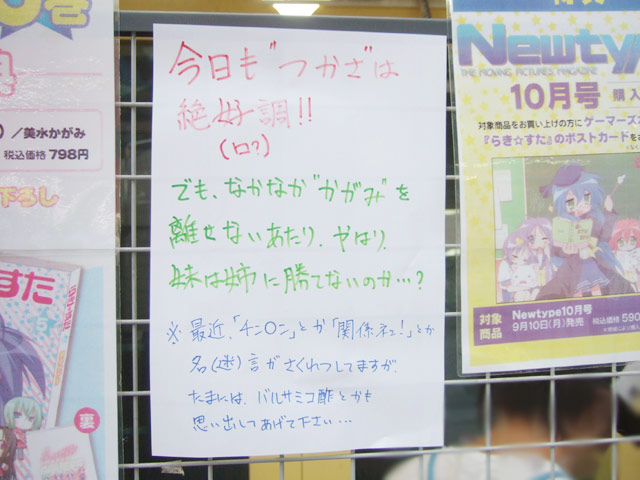 /美水かがみ
税込価格 798円
下ろし
すた
裏
今日も"つかさ"は
絶好調!!
(口?)
でも、なかなか"かがみ"を
離せないあたり、やはり、
妹は姉に勝てないのか…?
※最近、「チン〇ン」とか「関係ネェ!」とか
名(迷)言がさくれつしてますが、
たまには、バルサミコ酢とかも
思い出してあげて下さい…
Newtype
THE MOVING PICTURES MAGAZINE
10月号 購入
対象商品をお買い上げの方にゲーマーズ
『らき☆すた』のポストカードを
対象
商品
Newtype10月号
9月10日(月)発売 税込価格 590